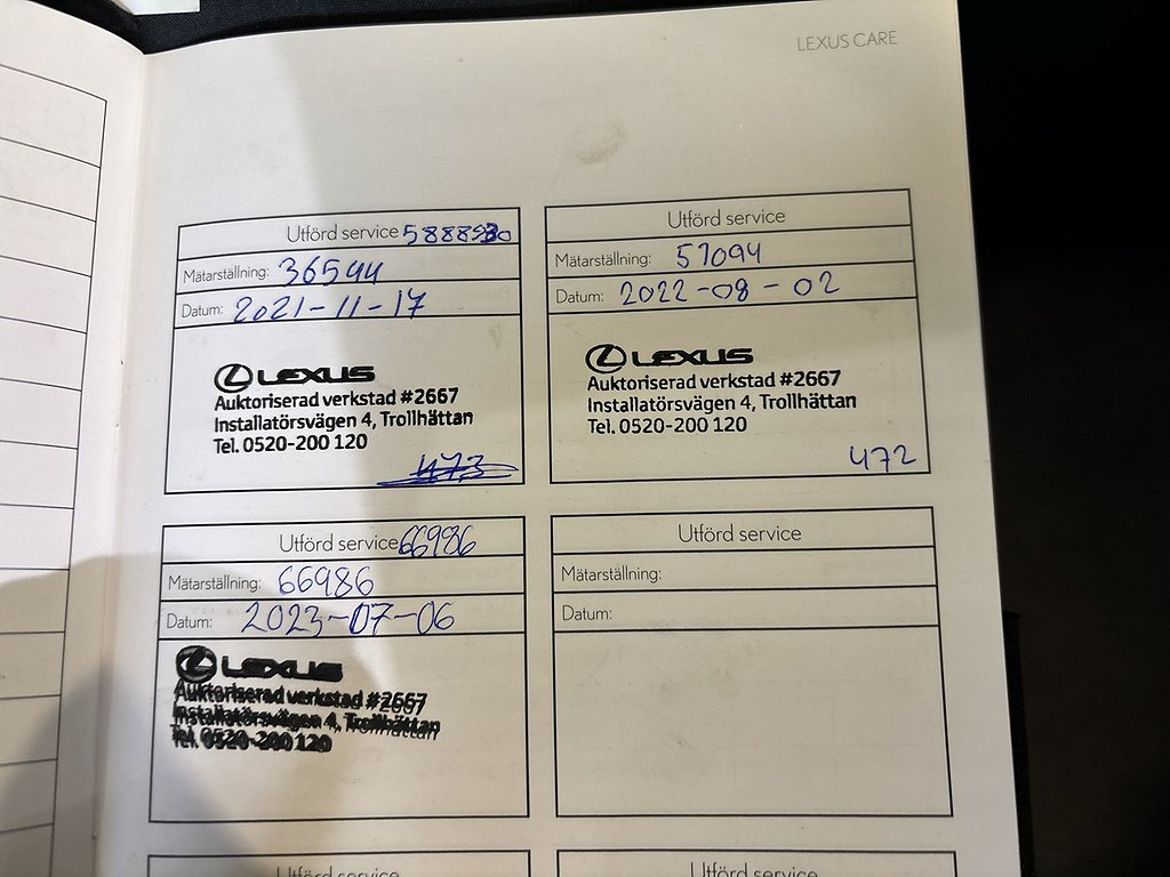 LEXUS CARE
Utförd service
Mätarställning: 36544
Datum: 2021-11-17
LEXUS
Auktoriserad verkstad #2667
Installatörsvägen 4, Trollhättan
Tel. 0520-200 120
473
Utförd service
Mätarställning: 57094
Datum: 2022-08-02
LEXUS
Auktoriserad verkstad #2667
Installatörsvägen 4, Trollhättan
Tel. 0520-200 120
472
Utförd service 66986
Mätarställning: 66986
Datum: 2023-07-06
LEXUS
Auktoriserad verkstad #2667
Installatörsvägen 4, Trollhättan
Tel. 0520-200 120
Utförd service
Mätarställning:
Datum:
Utförd service
Utförd service